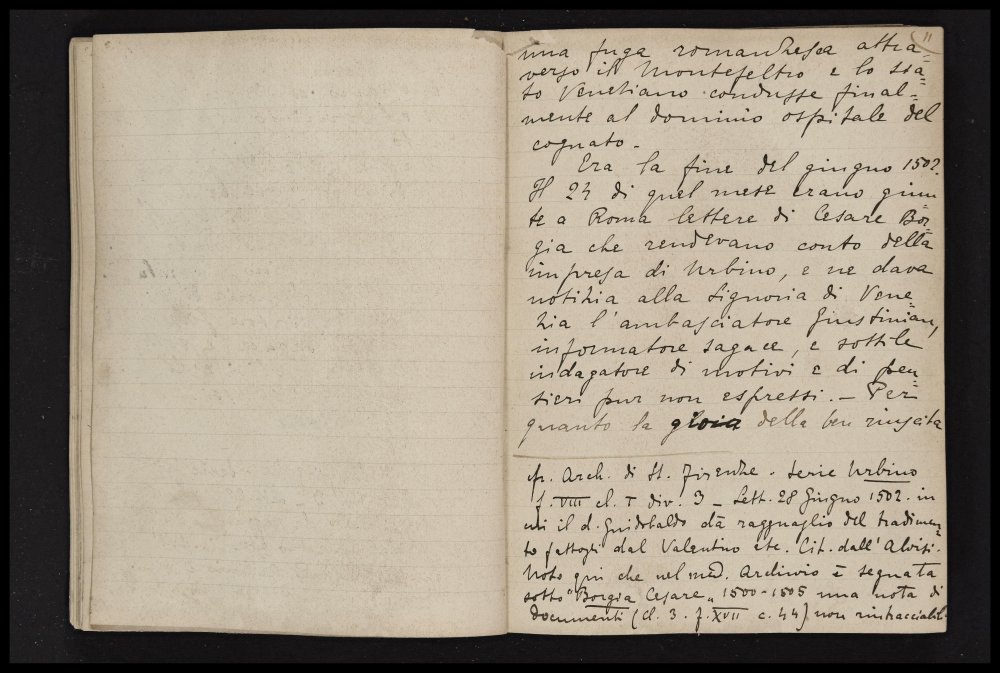 11
una fuga romanzesca attra=
verso il Montefeltro e lo sta=
to Veneziano condusse final=
mente al dominio ospitale del
cognato.
Era la fine del giugno 1502.
Il 24 di quel mese erano giun
te a Roma lettere di Cesare Bor=
gia che rendevano conto della
impresa di Urbino, e ne dava
notizia alla Signoria di Vene=
zia l'ambasciatore Giustinian,
informatore sagace, e sottile
indagatore di motivi e di pen
sieri pur non espressi. – Per
quanto la gioia della ben riuscita
cfr. Arch. di St. Firenze. Serie Urbino
f. VIII cl. I div. 3 – Lett. 28 Giugno 1502. in
cui il d. Guidobaldo dà ragguaglio del tradimen=
to fattogli dal Valentino etc. Cit. dall'Alvisi.
Noto qui che nel med. Archivio è segnata
sotto "Borgia Cesare„ 1500-1505 una nota di
documenti (Cl. 3. f. XVII c. 44) non rintracciabil